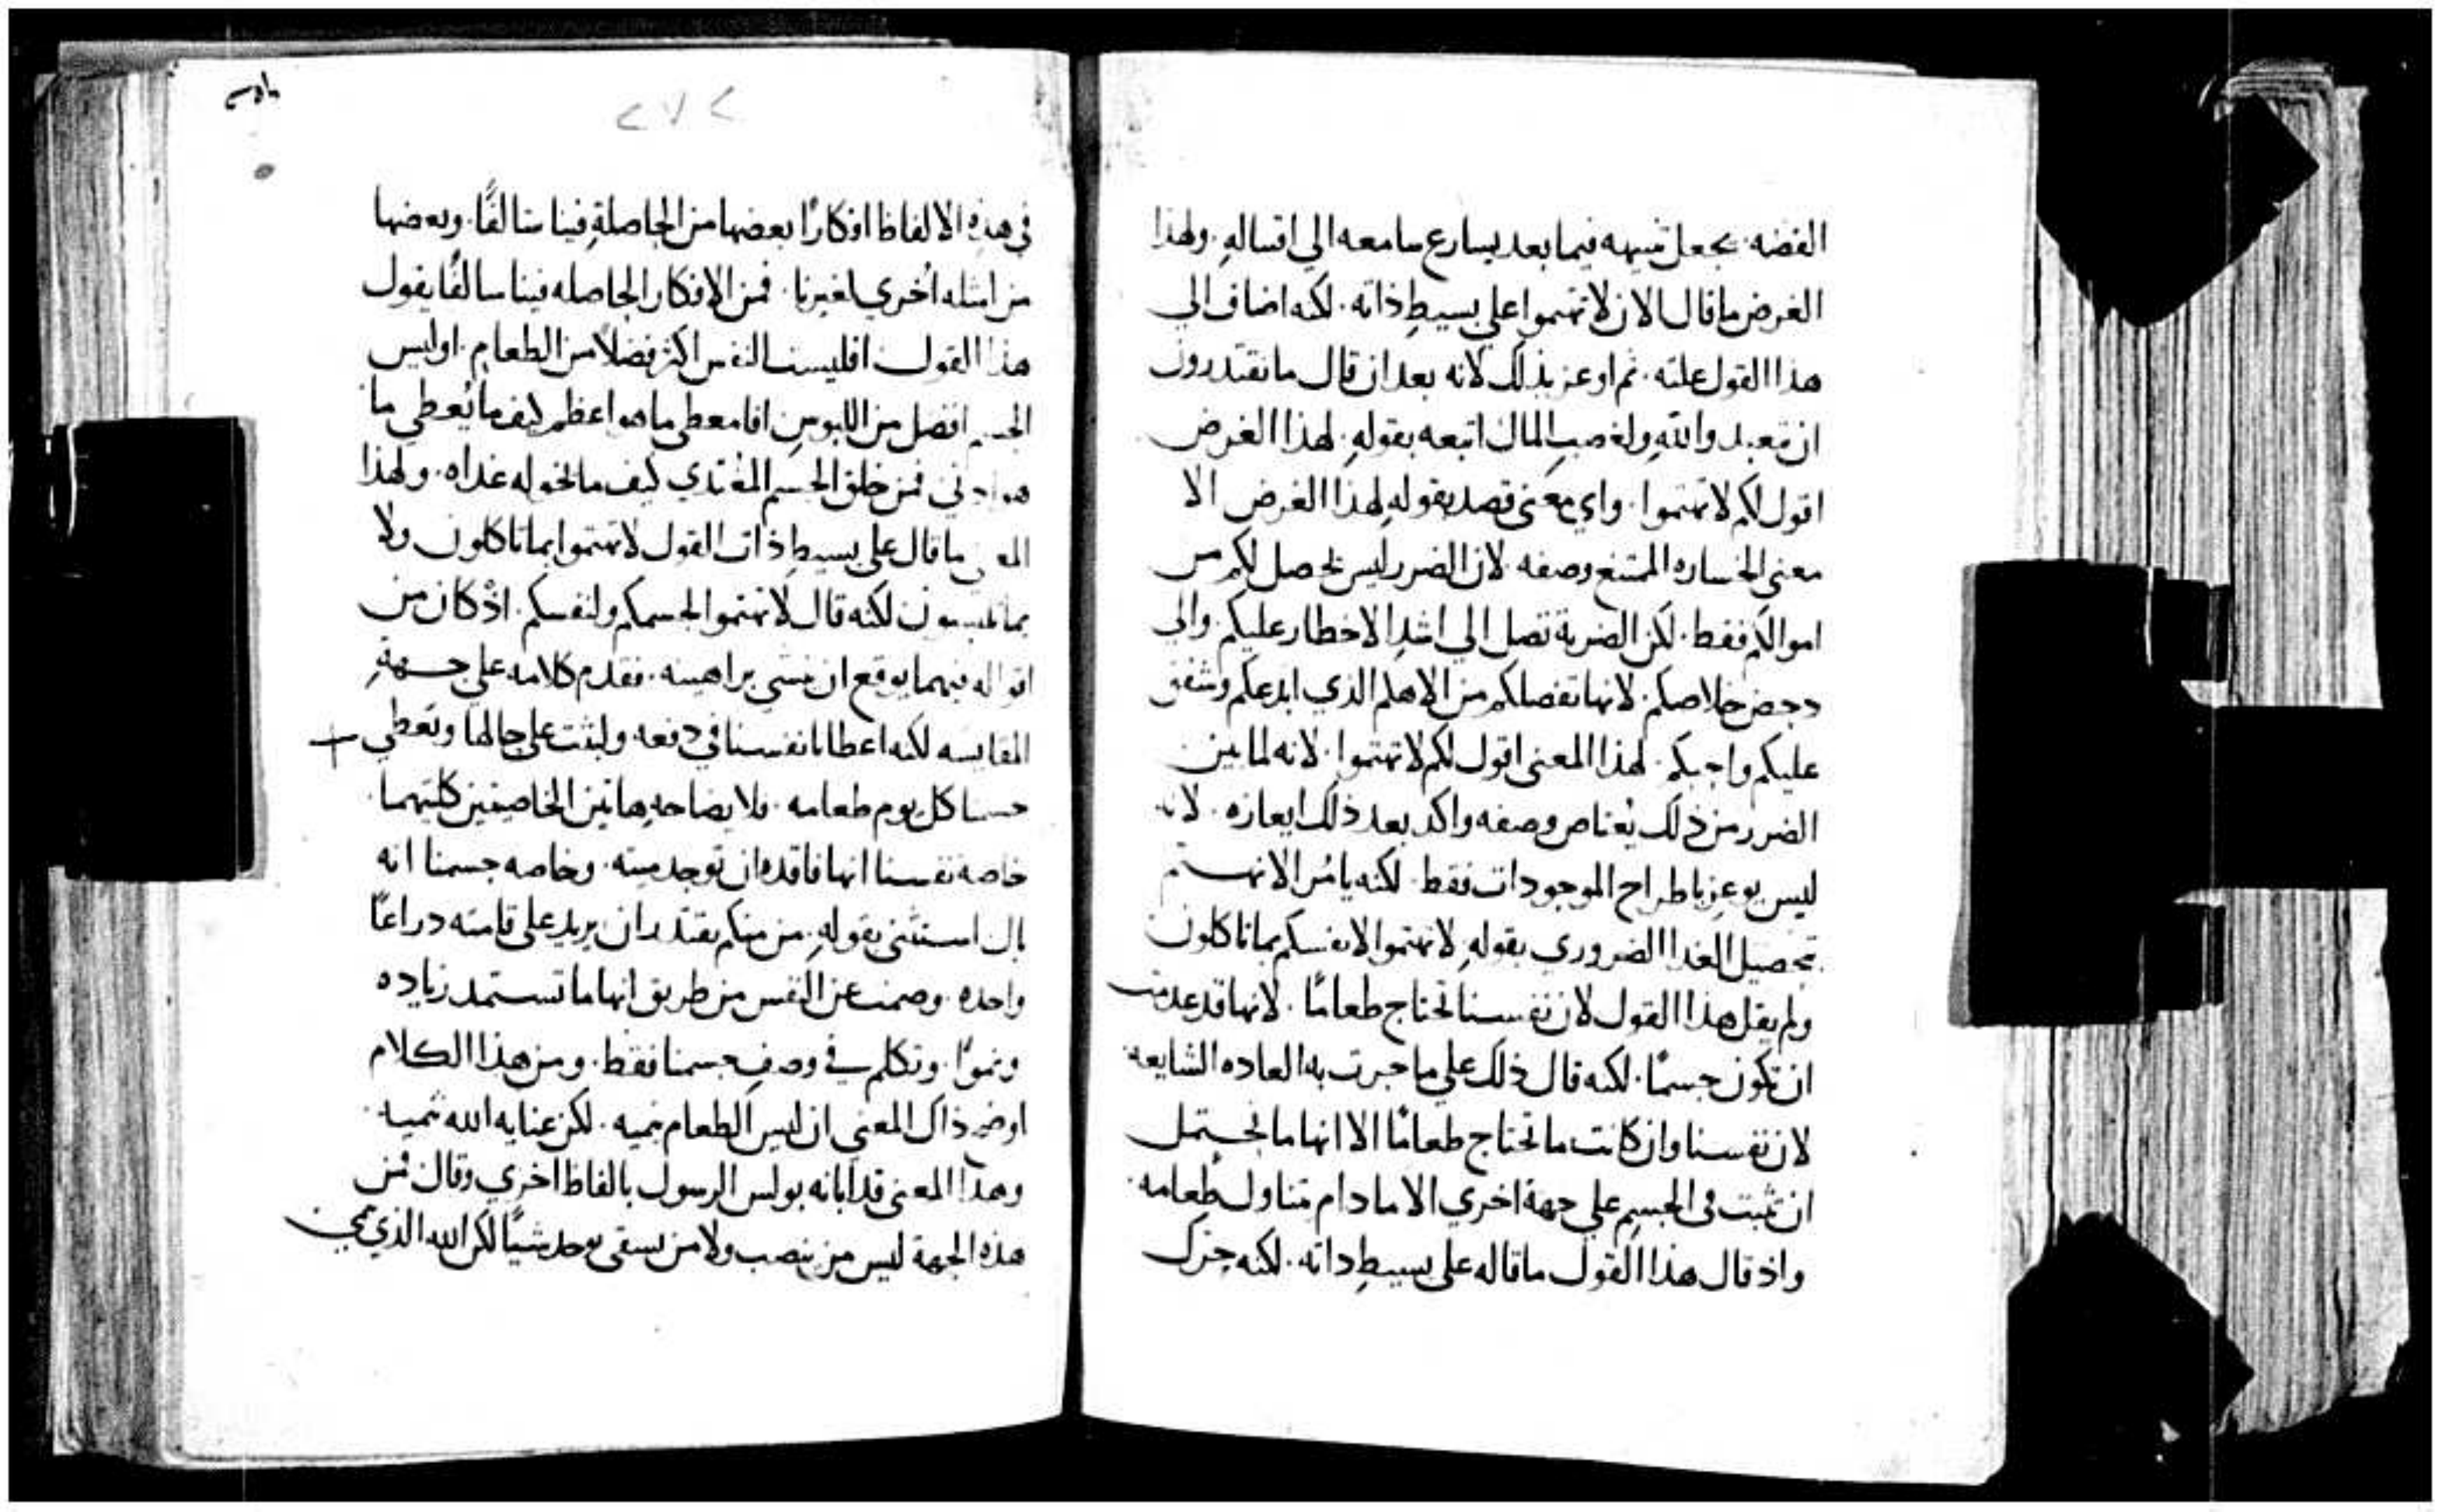 الفضه. يجعل شبيهه فيما بعد يسارع سامعه الي اقتباله. ولهذا
الغرض ما قال الان لا تهتموا علي بسيط ذاته. لكنه اضاف الي
هذا القول علته. ثم اوعز بذلك لانه بعد ان قال ما تقتدرون
ان تعبدوا الله ولغصب المال اتبعه بقوله. لهذا الغرض
اقول لكم لا تهتموا. واي معني قصد بقوله لهذا الغرض الا
معني الخساره الممتنع وصفه لان الضرر ليس يحصل لكم من
اموالكم فقط. لكن الضربة تصل الي اشد الاخطار عليكم. والي
دحض خلاصكم. لانها تفصلكم من الاهكم الذي ابدعكم وشفق
عليكم واحبكم. لهذا المعني اقول لكم لا تهتموا. لانه لما بين
الضرر من ذلك يعتاص وصفه واكد بعد ذلك ايعازه. لانه
ليس يوعز باطراح الموجودات فقط. لكنه يامر الا نهتم
بتحصيل الغدا الضروري بقوله لا تهتموا لانفسكم بما تاكلون
ولم يقل هذا القول لان نفسنا تحتاج طعامًا. لانها قد عدمت
ان تكون جسمًا. لكنه قال ذلك علي ما جرت به العاده الشايعه.
لان نفسنا وان كانت ما تحتاج طعامًا الا انها ما تحتمل
ان تثبت في الجسم علي جهة اخري الا ما دام متناول طعامه.
واذ قال هذا القول ما قاله علي بسيط داته. لكنه حرك
٢٧٢
في هذه الالفاظ افكارًا بعضها من الحاصلة فينا سالفًا. وبعضها
من امثله أخري لغيرنا. فمن الافكار الحاصله فينا سالفًا يقول
هذا القول افليست النفس اكثر فضلًا من الطعام. اوليس
الجسم افضل من اللبوس افا معطي ما هو اعظم كيف ما يُعطي ما
هو ادني فمن خلق الجسم المغتدي كيف ما يخوله غداه. ولهذا
المعني ما قال علي بسيط ذات القول لا تهتموا بما تاكلون ولا
بما تلبسون لكنه قال لا تهتموا لجسمكم ولنفسكم. اذ كان من
اقواله فيهما يوقع ان ينشي براهينه. فقدم كلامه علي جهة
المقايسه لكنه اعطانا نفسنا في دفعه ولبثت علي حالها وتعطي +
جسمنا كل يوم طعامه. فلايضاحه هاتين الخاصيتين كلتيهما.
خاصة نفسنا انها فاقده ان توجد ميته. وخاصه جسمنا انه
بال استثني بقوله. من منكم يقتدر ان يزيد علي قامته دراعًا
واحده. وصمت عن النفس من طريق انها ما تستمد زياده
ونموًا. وتكلم في وصف جسمنا فقط. ومن هذا الكلام
اوضح ذاك المعني ان ليس الطعام ينميه. لكن عنايه الله تنميه.
وهذا المعني قد ابانه بولس الرسول بالفاظ اخري وقال فمن
هذه الجهة ليس من ينصب ولا من يسقي يوجد شيًا لكن الله الذي